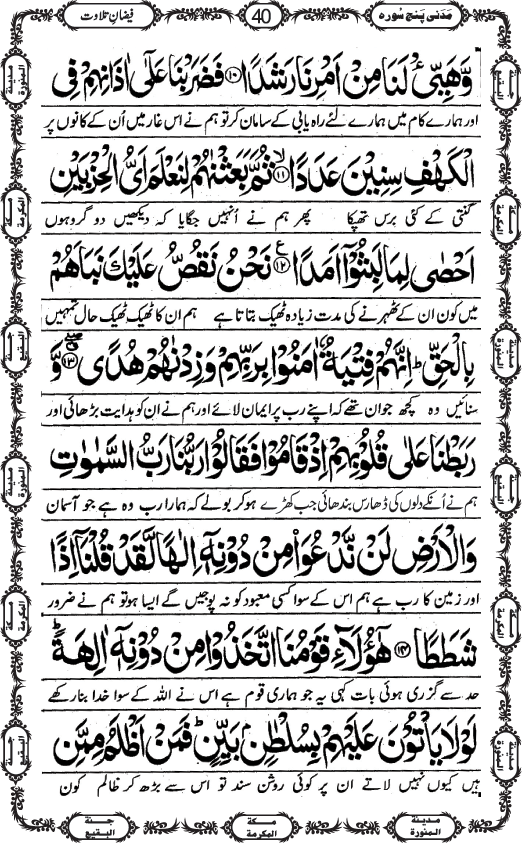 مَدَنی پنج سُورہ
40
فیضانِ تلاوت
وَّهَيِّئْ لَنَا مِنْ اَمْرِنَا رَشَدًا ﴿۱۰﴾ فَضَرَبْنَا عَلٰۤى اٰذَانِهِمْ فِی
اور ہمارے کام میں ہمارے لئے راہ یابی کے سامان کر تو ہم نے اس غار میں اُن کے کانوں پر
الْكَهْفِ سِنِيْنَ عَدَدًا ﴿۱۱﴾ ۙ ثُمَّ بَعَثْنٰهُمْ لِنَعْلَمَ اَیُّ الْحِزْبَيْنِ
گنتی کے کئی برس تھپکا پھر ہم نے اُنہیں جگایا کہ دیکھیں دو گروہوں
اَحْصٰى لِمَا لَبِثُوْۤا اَمَدًا ﴿۱۲﴾ ع نَحْنُ نَقُصُّ عَلَيْكَ نَبَاَهُمْ
میں کون ان کے ٹھہرنے کی مدت زیادہ ٹھیک بتاتا ہے ہم ان کا ٹھیک ٹھیک حال تمہیں
بِالْحَقِّ ؕ اِنَّهُمْ فِتْيَةٌ اٰمَنُوْا بِرَبِّهِمْ وَزِدْنٰهُمْ هُدًى ﴿۱۳﴾ وَّ
سنائیں وہ کچھ جوان تھے کہ اپنے رب پر ایمان لائے اور ہم نے ان کو ہدایت بڑھائی اور
رَبَطْنَا عَلٰى قُلُوْبِهِمْ اِذْ قَامُوْا فَقَالُوْا رَبُّنَا رَبُّ السَّمٰوٰتِ
ہم نے اُنکے دلوں کی ڈھارس بندھائی جب کھڑے ہو کر بولے کہ ہمارا رب وہ ہے جو آسمان
وَالْاَرْضِ لَنْ نَّدْعُوَا۟ مِنْ دُوْنِهٖۤ اِلٰهًا لَّقَدْ قُلْنَاۤ اِذًا
اور زمین کا رب ہے ہم اس کے سوا کسی معبود کو نہ پوجیں گے ایسا ہو تو ہم نے ضرور
شَطَطًا ﴿۱۴﴾ هٰۤؤُلَآءِ قَوْمُنَا اتَّخَذُوْا مِنْ دُوْنِهٖۤ اٰلِهَةً ؕ
حد سے گزری ہوئی بات کہی یہ جو ہماری قوم ہے اس نے اللہ کے سوا خدا بنا رکھے
لَوْلَا يَاْتُوْنَ عَلَيْهِمْ بِسُلْطٰنٍۭ بَيِّنٍ ؕ فَمَنْ اَظْلَمُ مِمَّنِ
ہیں کیوں نہیں لاتے ان پر کوئی روشن سند تو اس سے بڑھ کر ظالم کون
مدینة المنورة
جنة البقیع
مکة المکرمة
جنة البقیع
مدینة المنورة
مکة المکرمة
مدینة المنورة
جنة البقیع
جنة البقیع
مکة المکرمة
مدینة المنورة
جنة البقیع
مکة المکرمة
مدینة المنورة
جنة البقیع
مکة المکرمة
مدینة المنورة